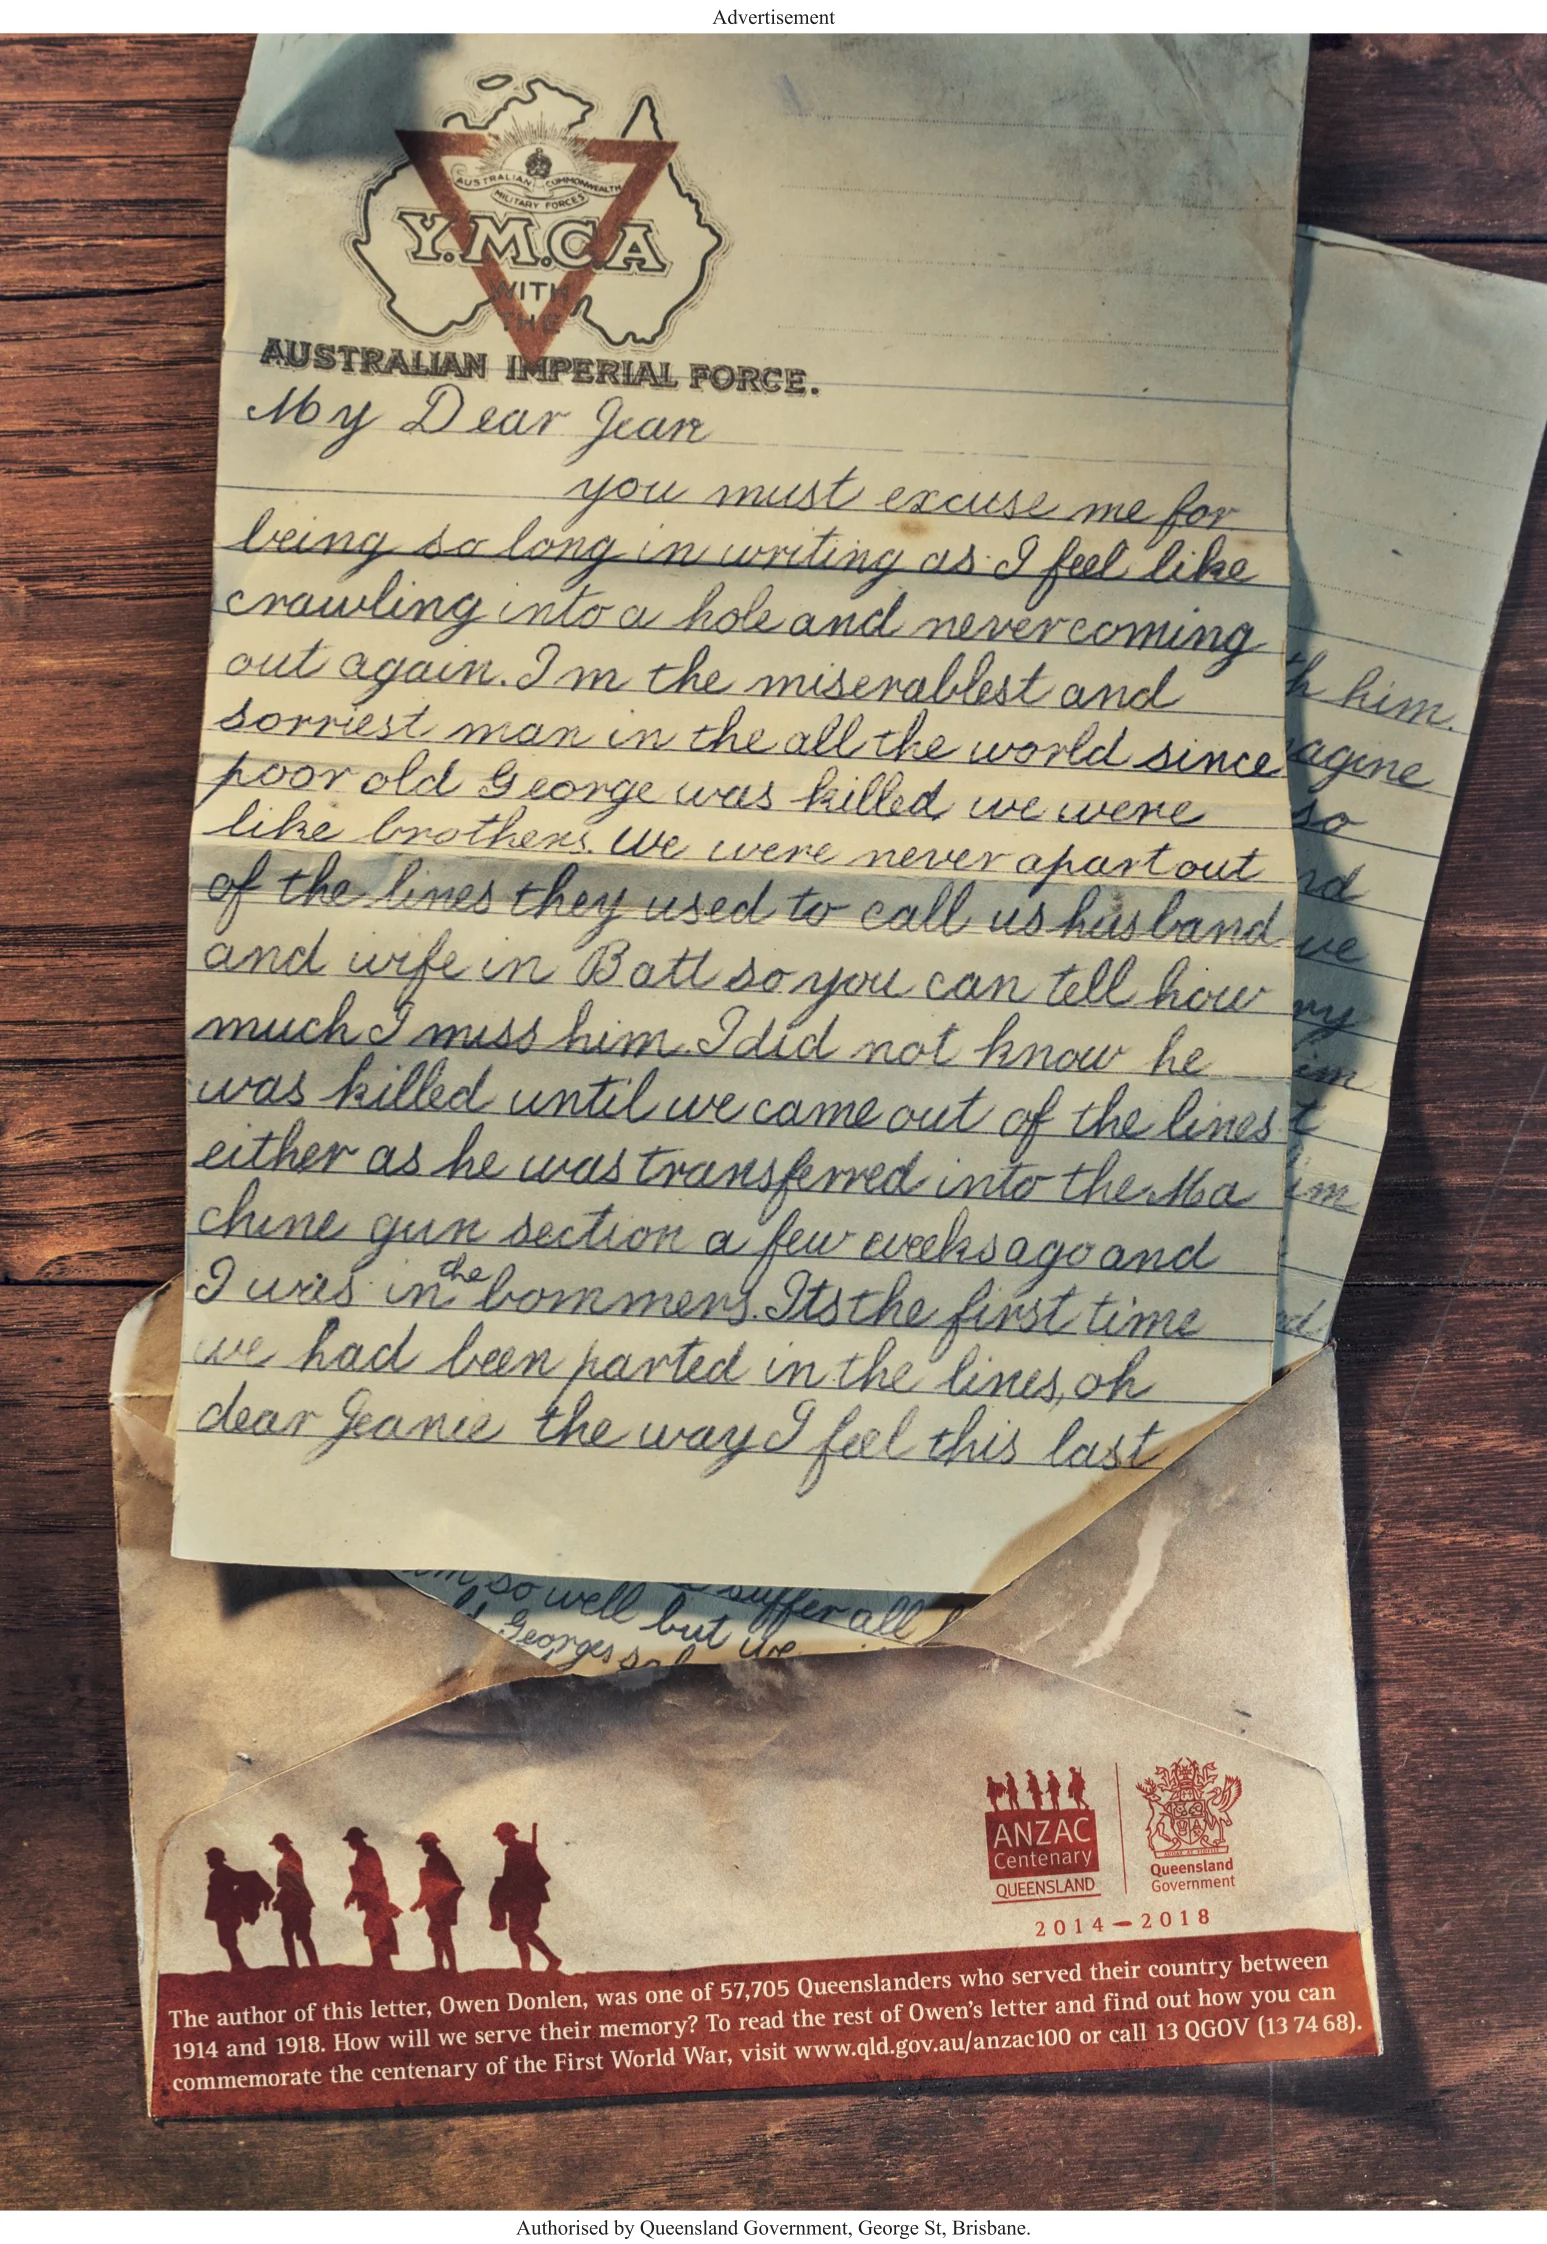 Advertisement
AUSTRALIAN COMMONWEALTH
MILITARY FORCES
Y.M.C.A
WITH
THE
AUSTRALIAN IMPERIAL FORCE.
My Dear Jean
you must excuse me for
being so long in writing as I feel like
crawling into a hole and never coming
out again. I m the miserablest and
sorriest man in the all the world since
poor old George was killed we were
like brothers. We were never apart out
of the lines they used to call us husband
and wife in Batt so you can tell how
much I miss him. I did not know he
was killed until we came out of the lines
either as he was transferred into the Ma
chine gun section a few weeks ago and
I was in the bommers. Its the first time
we had been parted in the lines, oh
dear Jeanie the way I feel this last
him.
so
so well but we
suffer all
Georges
ANZAC
Centenary
QUEENSLAND
Queensland
Government
2014–2018
The author of this letter, Owen Donlen, was one of 57,705 Queenslanders who served their country between
1914 and 1918. How will we serve their memory? To read the rest of Owen's letter and find out how you can
commemorate the centenary of the First World War, visit www.qld.gov.au/anzac100 or call 13 QGOV (13 74 68).
Authorised by Queensland Government, George St, Brisbane.